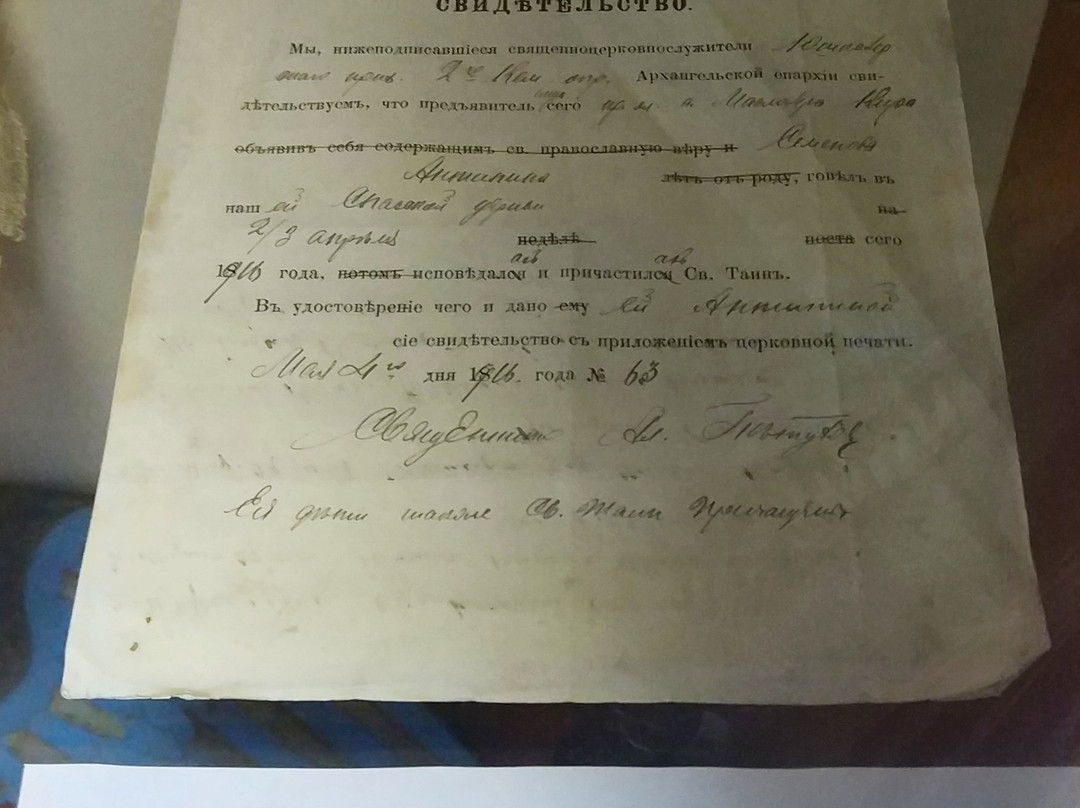 СВИДѢТЕЛЬСТВО.
Мы, нижеподписавшіеся священноцерковнослужители
2го Кем. Архангельской епархіи сви-
дѣтельствуемъ, что предъявитель сего
объявивъ себя содержащимъ св. православную вѣру и Семенова
Антипина лѣтъ отъ роду, говѣлъ въ
наш ей Спасской церкви на
2/3 апрѣля недѣлѣ поста сего
1916 года, потомъ исповѣдалась и причастилась Св. Таинъ.
Въ удостовѣреніе чего и дано ему ей Антипиной
сіе свидѣтельство съ приложеніемъ церковной печати.
Мая 4го дня 1916. года № 63
Священникъ Ал.
Ея дѣти также Св. Таинъ